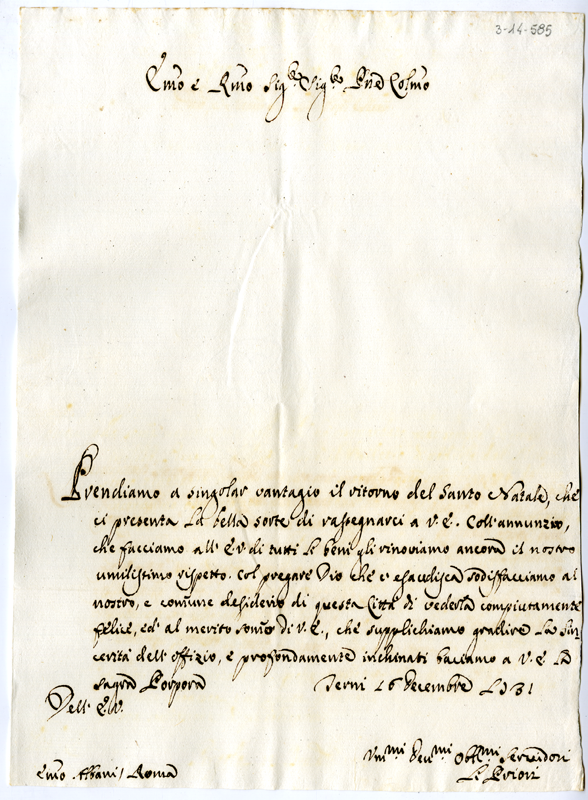 3-14-585
Emo e Rmo Sigre Sigre Pne Colmo
Prendiamo a singolar vantagio il ritorno del Santo Natale, che
ci presenta la bella sorte di rassegnarci a V. E. Coll'annunzio,
che facciamo all' E.V. di tutti li beni gli rinoviamo ancora il nostro
umilissimo rispetto. Col pregare Dio che ci esaudisca sodisfacciamo al
nostro, e comune desiderio di questa Città di vederla compiutamente
felice, ed' al merito somo di V. E., che supplichiamo gradire la Sin
cerità dell'offizio, e profondamente inchinati baciamo a V. E. la
Sagra Porpora Terni 16 Decembre 1731
Dell' E.V.
Emo Albani / Roma
Umi Devmi Obbmi Servidori
Li Priori